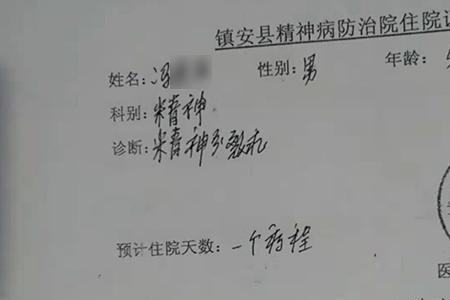 镇安县精神病防治院住院
姓名:冯 性别:男 年龄:
科别:精神
诊断:精神分裂
预计住院天数:一个疗程
医